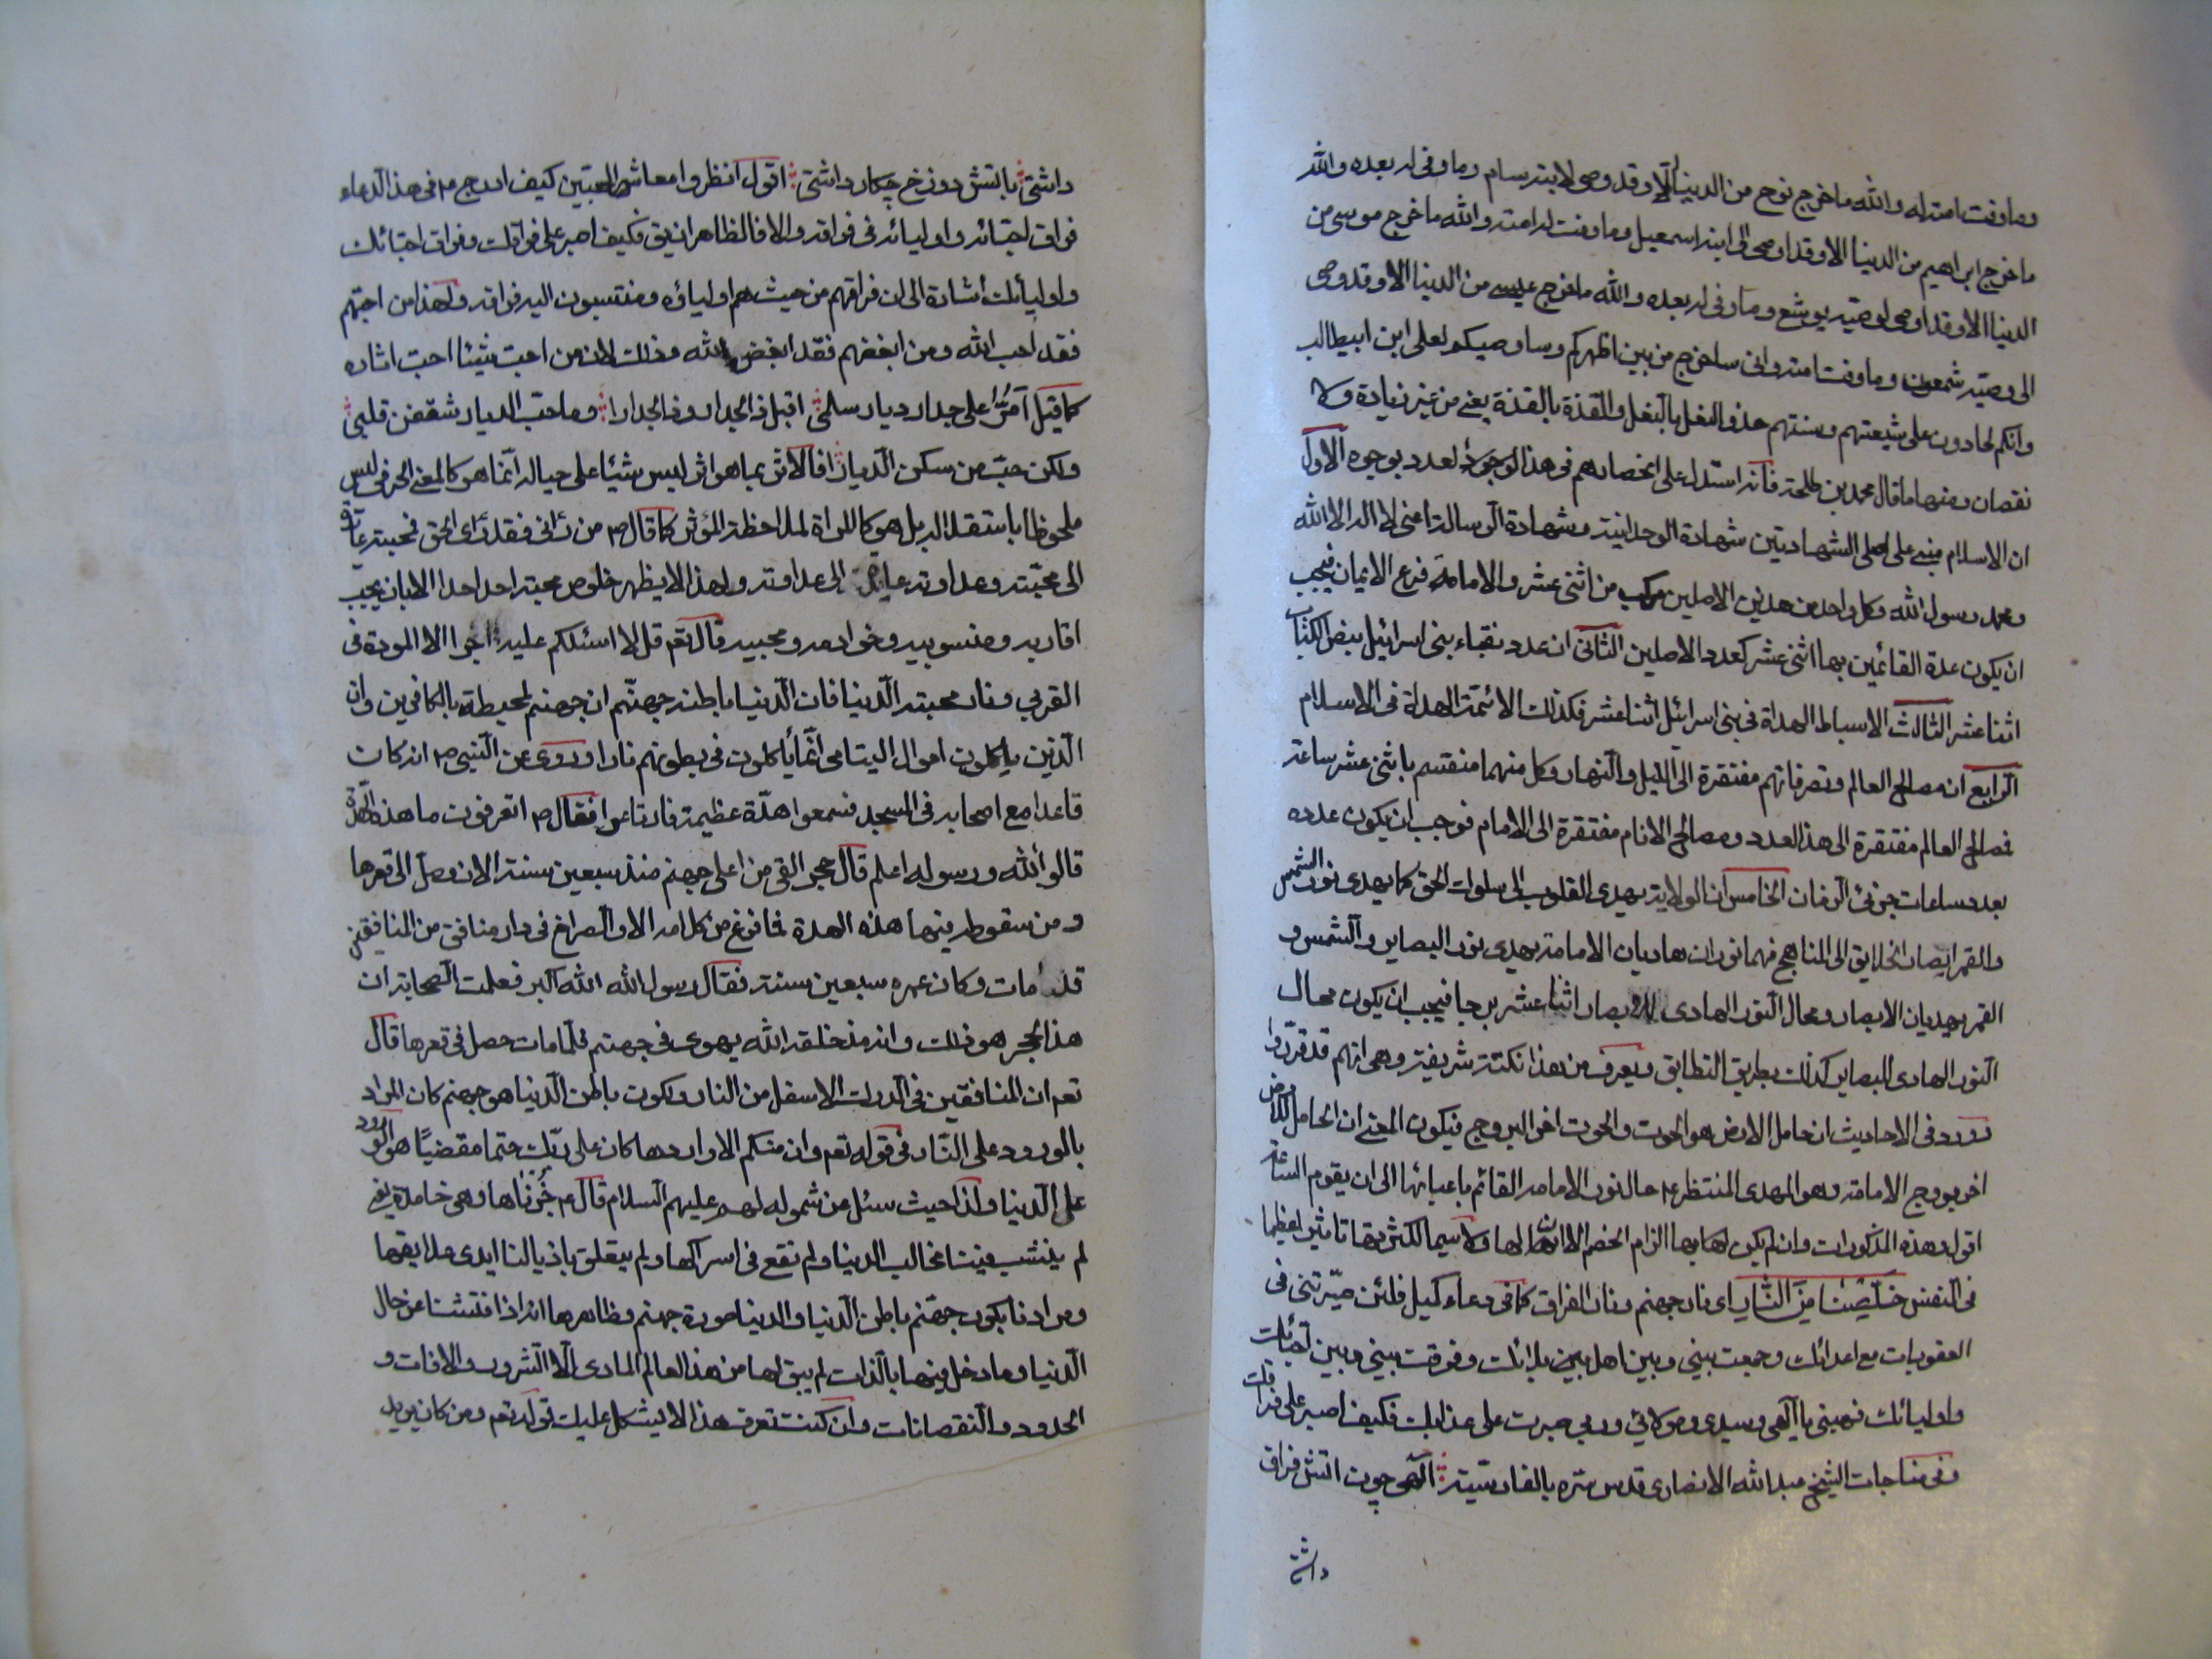 وما وفت امته له والله ما خرج نوح من الدنيا الا وقد وصى لابنه سام وما وفى له بعده والله
ما خرج ابراهيم من الدنيا الا وقد اوصى الى ابنه اسمعيل وما وفت له امته والله ما خرج موسى من
الدنيا الا وقد اوصى لوصيه يوشع وما وفى له بعده والله ما خرج عيسى من الدنيا الا وقد وصى
الى وصيه شمعون وما وفت امته وانى ساخرج من بين اظهركم وساوصيكم لعلى ابن ابيطالب
وانكم لحادون على شيعتهم وسنتهم حذو النعل بالنعل والقذة بالقذة يعنى من غير زيادة ولا
نقصان ومنها ما قال محمد بن طلحة فانه استدل على انحصارهم فى هذا العدد بوجوه الاول
ان الاسلام مبنى على اصلى الشهادتين شهادة الوحدانية وشهادة الرسالة اعنى لا اله الا الله
ومحمد رسول الله وكل واحد من هذين الاصلين مركب من اثنى عشر والامامة فرع الايمان فيجب
ان يكون عدة القائمين بها اثنى عشر كعدد الاصلين الثانى ان عدد نقباء بنى اسرائيل بنص الكتاب
اثنا عشر الثالث الاسباط الهداة فى بنى اسرائيل اثنا عشر فكذلك الائمة الهداة فى الاسلام
الرابع ان مصالح العالم وتصرفاتهم مفتقرة الى الليل والنهار وكل منهما منقسم باثنى عشر ساعة
فصالح العالم مفتقرة الى هذا العدد ومصالح الانام مفتقرة الى الامام فوجب ان يكون عدده
بعدد ساعات جزئى الزمان الخامس ان الولاية يهدى القلوب الى سلوك الحق كما يهدى نور الشمس
والقمر ابصار الخلايق الى المناهج فهما نوران هاديان الامامة يهدى نور البصاير والشمس و
القمر يهديان الابصار ومحال النور الهادى للابصار اثنا عشر برجا فيجب ان يكون محال
النور الهادى للبصاير كذلك بطريق التطابق ويعرف من هذا نكتة شريفة وهى انهم قد قرروا
وورد فى الاحاديث ان حامل الارض هو الحوت والحوت اخر البروج فيكون المعنى ان الحامل للارض
اخر بروج الامامة وهو المهدى المنتظر ع حال نور الامامة القائم باعبائها الى ان يقوم الساعة
اقول وهذه المذكورات وان لم يكن لها بها الزام الخصم الا ان لها ولا سيما لكثرتها تاثيرا عظيما
فى النفس خلصنا من النار اى نار جهنم ونار الفراق كما فى دعاء كميل فلئن صيرتنى فى
العقوبات مع اعدائك وجمعت بينى وبين اهل بلائك وفرقت بينى وبين احبائك
واوليائك فهبنى يا الهى وسيدى ومولائى وربى صبرت على عذابك فكيف اصبر على فراقك
وفى مناجات الشيخ عبد الله الانصارى قدس سره بالفارسية الهى چون اتش فراق
داشتى
داشتى باتش دوزخ چكار داشتى اقول انظروا معاشر المحبين كيف ادرج ع فى هذا الدعاء
فراق احبائه واوليائه فى فراقه والا فالظاهر ان يق فكيف اصبر على فراقك وفراق احبائك
واوليائك اشارة الى ان فراقهم من حيث هم اولياؤه ومنتسبون اليه فراقه ولهذا من احبهم
فقد احب الله ومن ابغضهم فقد ابغض الله وذلك لان من احب شيئا احب اثاره
كما قيل امر على جدار ديار سلمى اقبل ذا الجدار وذا الجدارا وما حب الديار شغفن قلبى
ولكن حب من سكن الديارا فالاثر بما هو اثر ليس شيئا على حياله انما هو كالمعنى الحرفى ليس
ملحوظا باستقلاله بل هو كالمراة لملاحظة المؤثر كما قال ص من رانى فقد راى الحق فمحبته
الى محبته وعداوته الى عداوته ولهذا لا يظهر خلوص محبة احد احدا الا بان يحب
اقاربه ومنسوبيه وخوادمه ومحبيه قال تعم قل لا اسئلكم عليه اجرا الا المودة فى
القربى ونار محبته الدنيا فان الدنيا باطنه جهنم ان جهنم لمحيطة بالكافرين وان
الذين ياكلون اموال اليتامى انما ياكلون فى بطونهم نارا وروى عن النبى ص انه كان
قاعدا مع اصحابه فى المسجد فسمعوا هدة عظيمة فارتاعوا فقال ص اتعرفون ما هذه الهدة
قالوا الله ورسوله اعلم قال حجر القى من اعلى جهنم منذ سبعين سنة الان وصل الى قعرها
ومن سقوطه فيها هذه الهدة فما فرغ من كلامه الا والصراخ فى دار منافق من المنافقين
قد مات وكان عمره سبعين سنة فقال رسول الله الله اكبر فعلمت الصحابة ان
هذا الحجر هو ذلك وانه منذ خلقه الله يهوى فى جهنم فلما مات حصل فى قعرها قال
تعم ان المنافقين فى الدرك الاسفل من النار ولكون باطن الدنيا هو جهنم كان المراد
بالورود على النار فى قوله تعم وان منكم الا واردها كان على ربك حتما مقضيا هو الورود
على الدنيا ولذا حيث سئل عن شموله لهم عليهم السلام قال ع جزناها وهى خامدة يعنى
لم ينشب فينا مخالب الدنيا ولم نقع فى اسراكها ولم يتعلق باذيالنا ايدى علايقها
ومرادنا بكون جهنم باطن الدنيا والدنيا صورة جهنم وظاهرها انه اذا فتشنا عن حال
الدنيا وما دخل فيها بالذات لم يبق لها من هذا العالم المادى الا الشرور والافات و
الحدود والنقصانات وان كنت تعرف هذا لا يشكل عليك قوله تعم ومن كان يريد